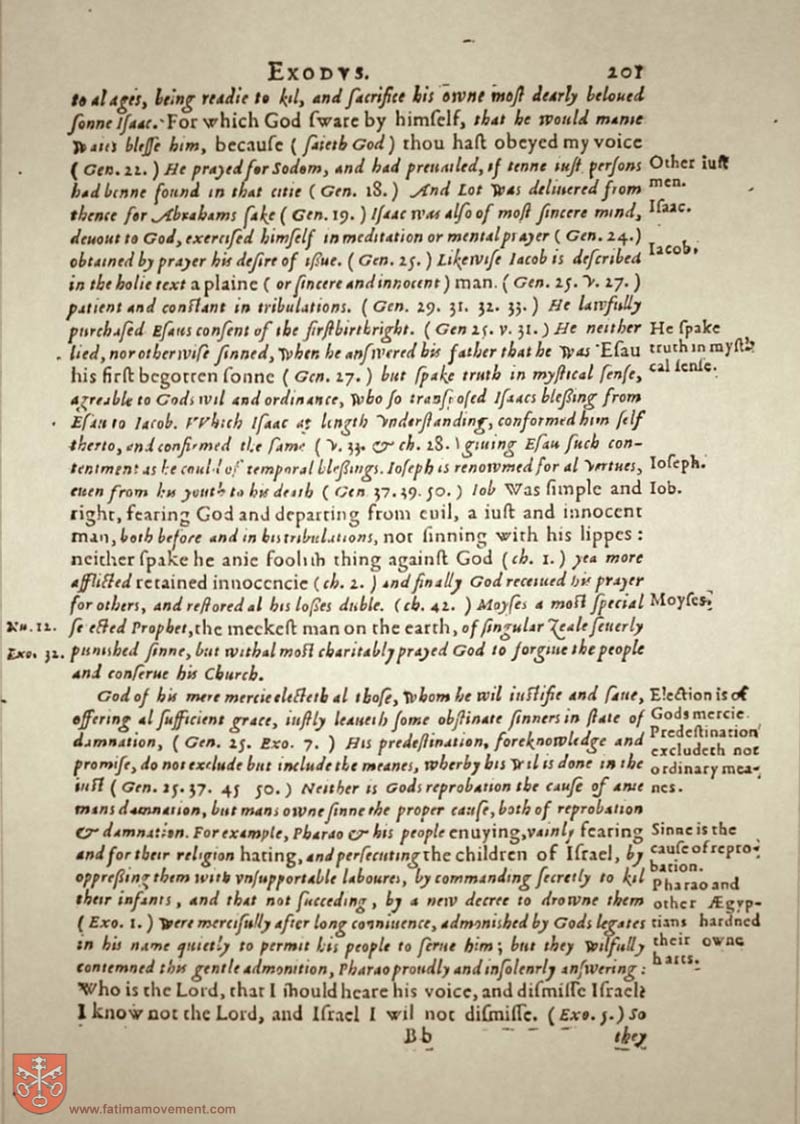 EXODVS. 201
to al ages, being readie to kil, and sacrifice his owne most dearly beloued
sonne Isaac. For which God sware by himself, that he would manie
waies blesse him, because (saieth God) thou hast obeyed my voice
(Gen. 22.) He prayed for Sodom, and had preuailed, if tenne iust persons
had benne found in that citie (Gen. 18.) And Lot was deliuered from
thence for Abrahams sake (Gen. 19.) Isaac was also of most sincere mind,
deuout to God, exercised himself in meditation or mental prayer (Gen. 24.)
obtained by prayer his desire of issue. (Gen. 25.) Likewise Iacob is described
in the holie text a plaine (or sincere and innocent) man. (Gen. 25. v. 27.)
patient and constant in tribulations. (Gen. 29. 31. 32. 33.) He lawfully
purchased Esaus consent of the first birthright. (Gen 25. v. 31.) He neither
lied, nor otherwise sinned, when he answered his father that he was Esau
his first begotten sonne (Gen. 27.) but spake truth in mystical sense,
agreable to Gods wil and ordinance, who so transposed Isaacs blessing from
Esau to Iacob. VVhich Isaac at length vnderstanding, conformed him self
therto, and confirmed the same (v. 33. & ch. 28.) giuing Esau such con-
tentment as he could of temporal blessings. Ioseph is renowmed for al vertues,
euen from his youth to his death (Gen 37. 39. 50.) Iob was simple and
right, fearing God and departing from euil, a iust and innocent
man, both before and in his tribulations, not sinning with his lippes:
neither spake he anie foolish thing against God (ch. 1.) yea more
afflicted retained innocencie (ch. 2.) and finally God receiued his prayer
for others, and restored al his losses duble. (ch. 42.) Moyses a most special
selected Prophet, the meekest man on the earth, of singular zeale seuerly
punished sinne, but withal most charitably prayed God to forgiue the people
and conserue his Church.
God of his mere mercie electeth al those, whom he wil iustifie and saue,
offering al sufficient grace, iustly leaueth some obstinate sinners in state of
damnation, (Gen. 25. Exo. 7.) His predestination, foreknowledge and
promise, do not exclude but include the meanes, wherby his wil is done in the
iust (Gen. 25. 37. 45 50.) Neither is Gods reprobation the cause of anie
mans damnation, but mans owne sinne the proper cause, both of reprobation
& damnation. For example, Pharao & his people enuying, vainly fearing
and for their religion hating, and persecuting the children of Israel, by
oppressing them with vnsupportable laboures, by commanding secretly to kil
their infants, and that not succeding, by a new decree to drowne them
(Exo. 1.) were mercifully after long conniuence, admonished by Gods legates
in his name quietly to permit his people to serue him; but they wilfully
contemned this gentle admonition, Pharao proudly and insolently answering:
Who is the Lord, that I should heare his voice, and dismisse Israel?
I know not the Lord, and Israel I wil not dismisse. (Exo. 5.) So
Bb they
Other iust
men.
Isaac.
Iacob.
He spake
truth in mysti-
cal sense.
Ioseph.
Iob.
Moyses.
Nu. 12.
Exo. 32.
Election is of
Gods mercie.
Predestination
excludeth not
ordinary mea-
nes.
Sinne is the
cause of repro-
bation.
Pharao and
other Ægyp-
tians hardned
their owne
harts.
www.fatimamovement.com